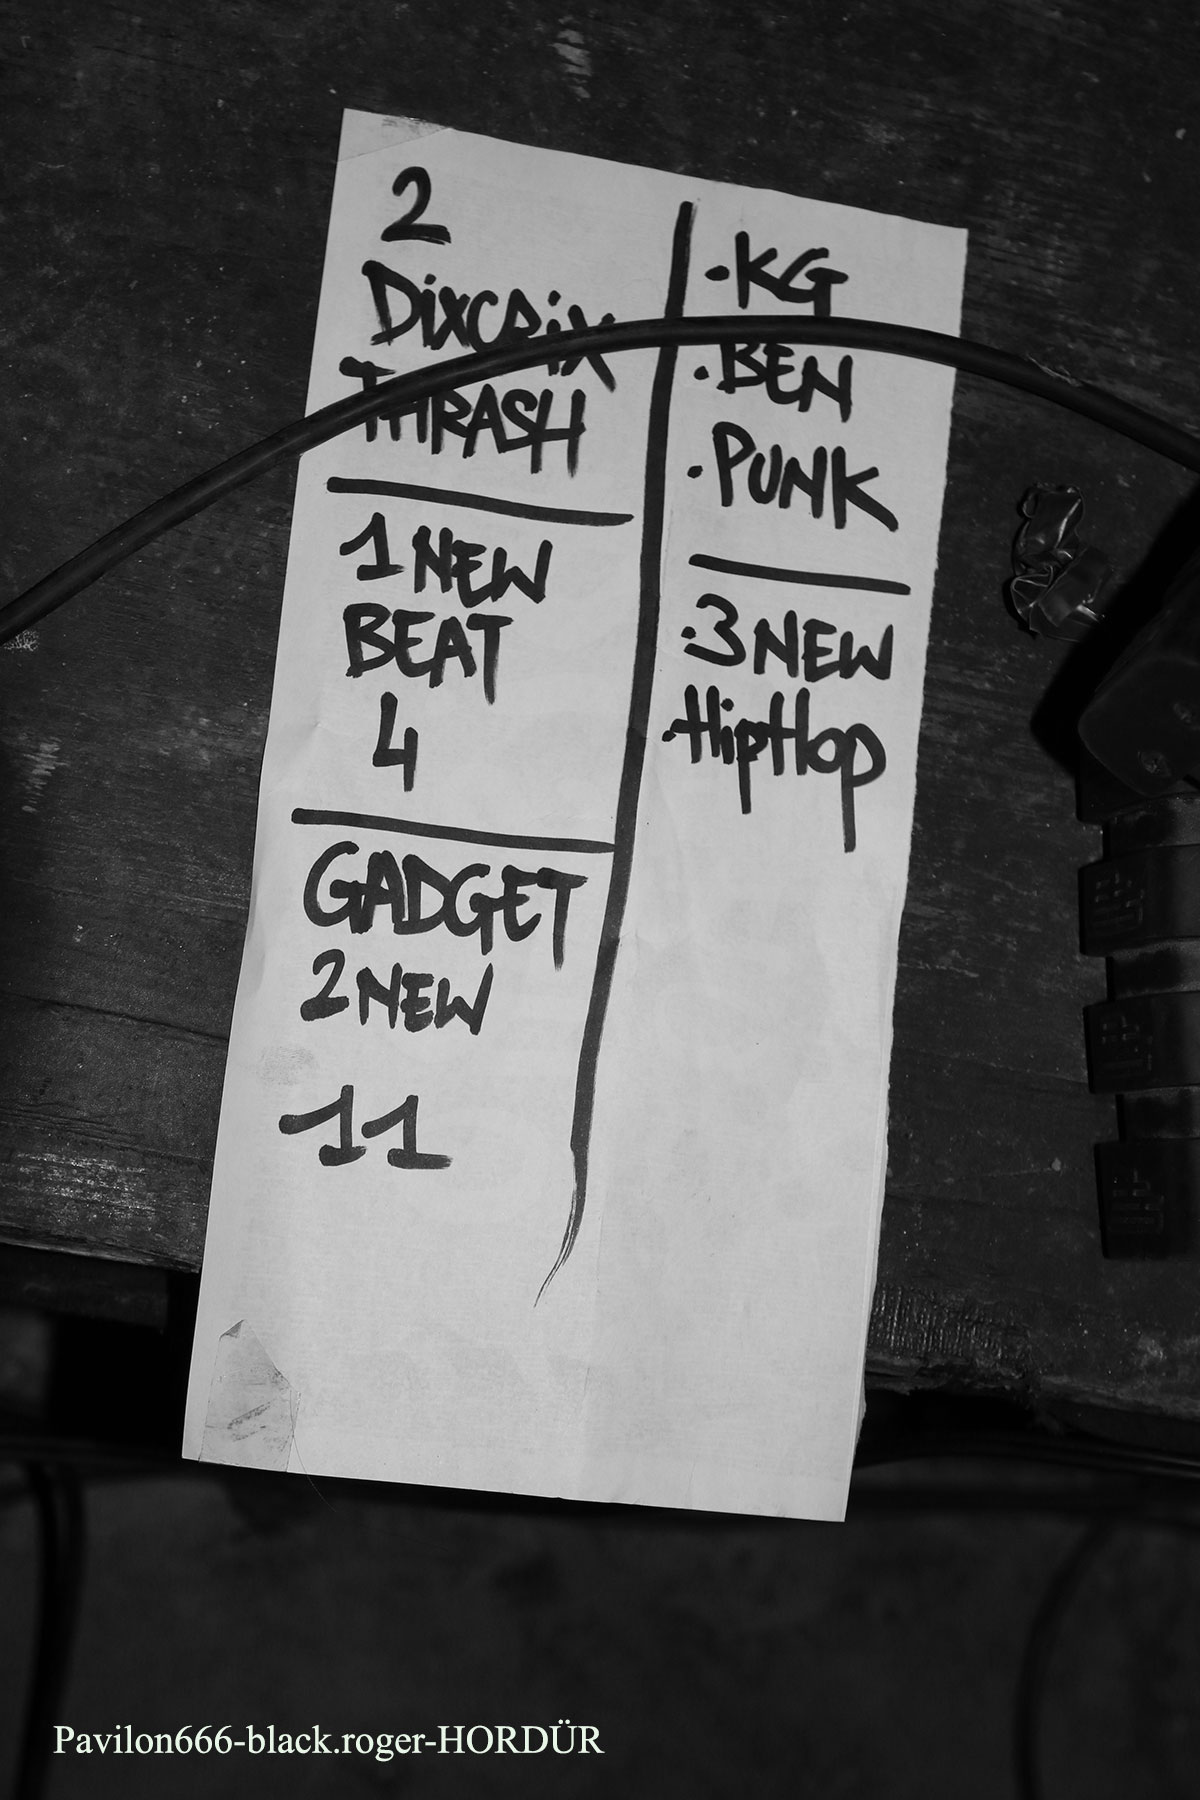 2
DixCRiX
THRASH
1 NEW
BEAT
4
GADGET
2 NEW
11
·KG
·BEN
·PUNK
·3 NEW
·HipHop
Pavilon666-black.roger-HORDÜR